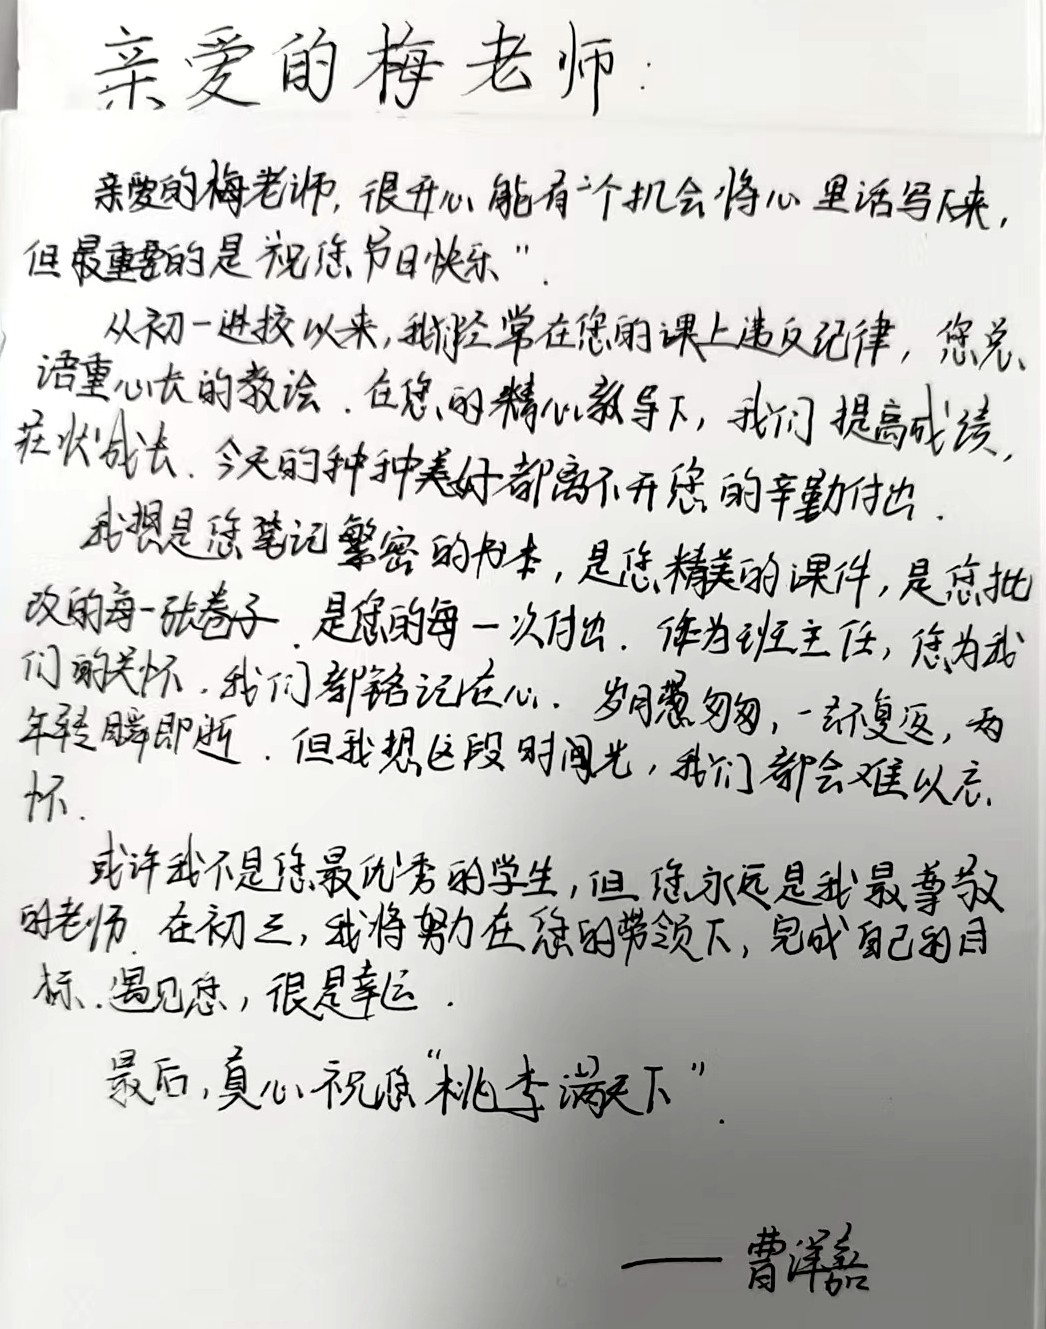 亲爱的梅老师：
亲爱的梅老师，很开心能有一个机会将心里话写下来，
但最重要的是祝您节日快乐”.
从初一进校以来，我们经常在您的课上违反纪律，您总、
语重心长的教诲.在您的精心教导下，我们提高成绩，
茁壮成长.今天的种种美好都离不开您的辛勤付出.
我想是您笔记繁密的书本，是您精美的课件，是您批
改的每一张卷子.是您的每一次付出.作为班主任，您为我
们的关怀.我们都铭记在心.岁月匆匆，一去不复返，两
年转瞬即逝.但我想这段时间光，我们都会难以忘
怀.
或许我不是您最优秀的学生，但您永远是我最尊敬
的老师.在初三，我将努力在您的带领下，完成自己的目
标.遇见您，很是幸运.
最后，真心祝您“桃李满天下”.
——曹洋嘉